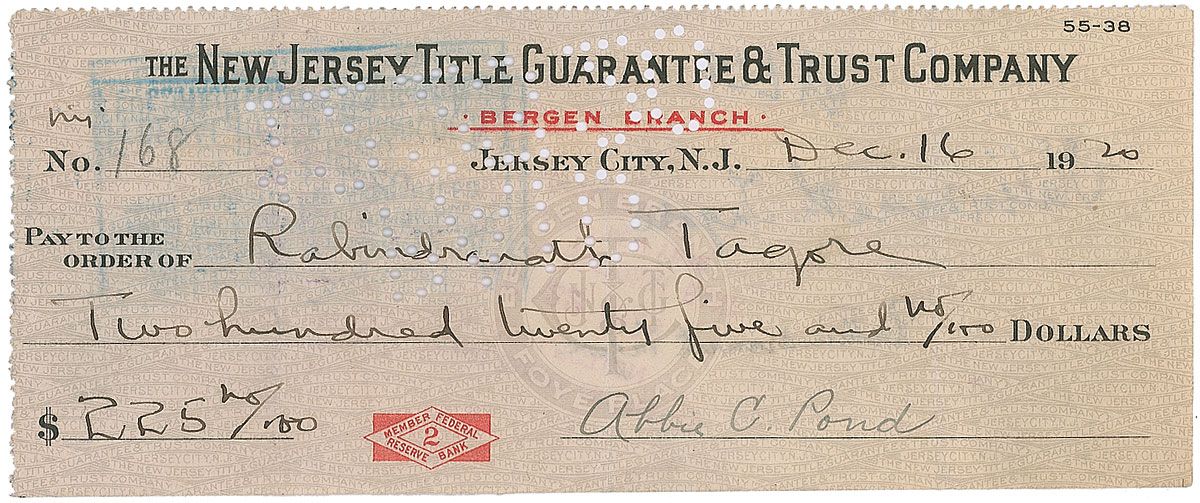 55-38
THE NEW JERSEY TITLE GUARANTEE & TRUST COMPANY
· BERGEN BRANCH ·
No. 168 JERSEY CITY, N.J. Dec. 16 1920
PAY TO THE
ORDER OF Rabindranath Tagore
Two hundred twenty five and no/100 DOLLARS
$ 225 no/100 Abbie C. Pond
MEMBER FEDERAL
2
RESERVE BANK